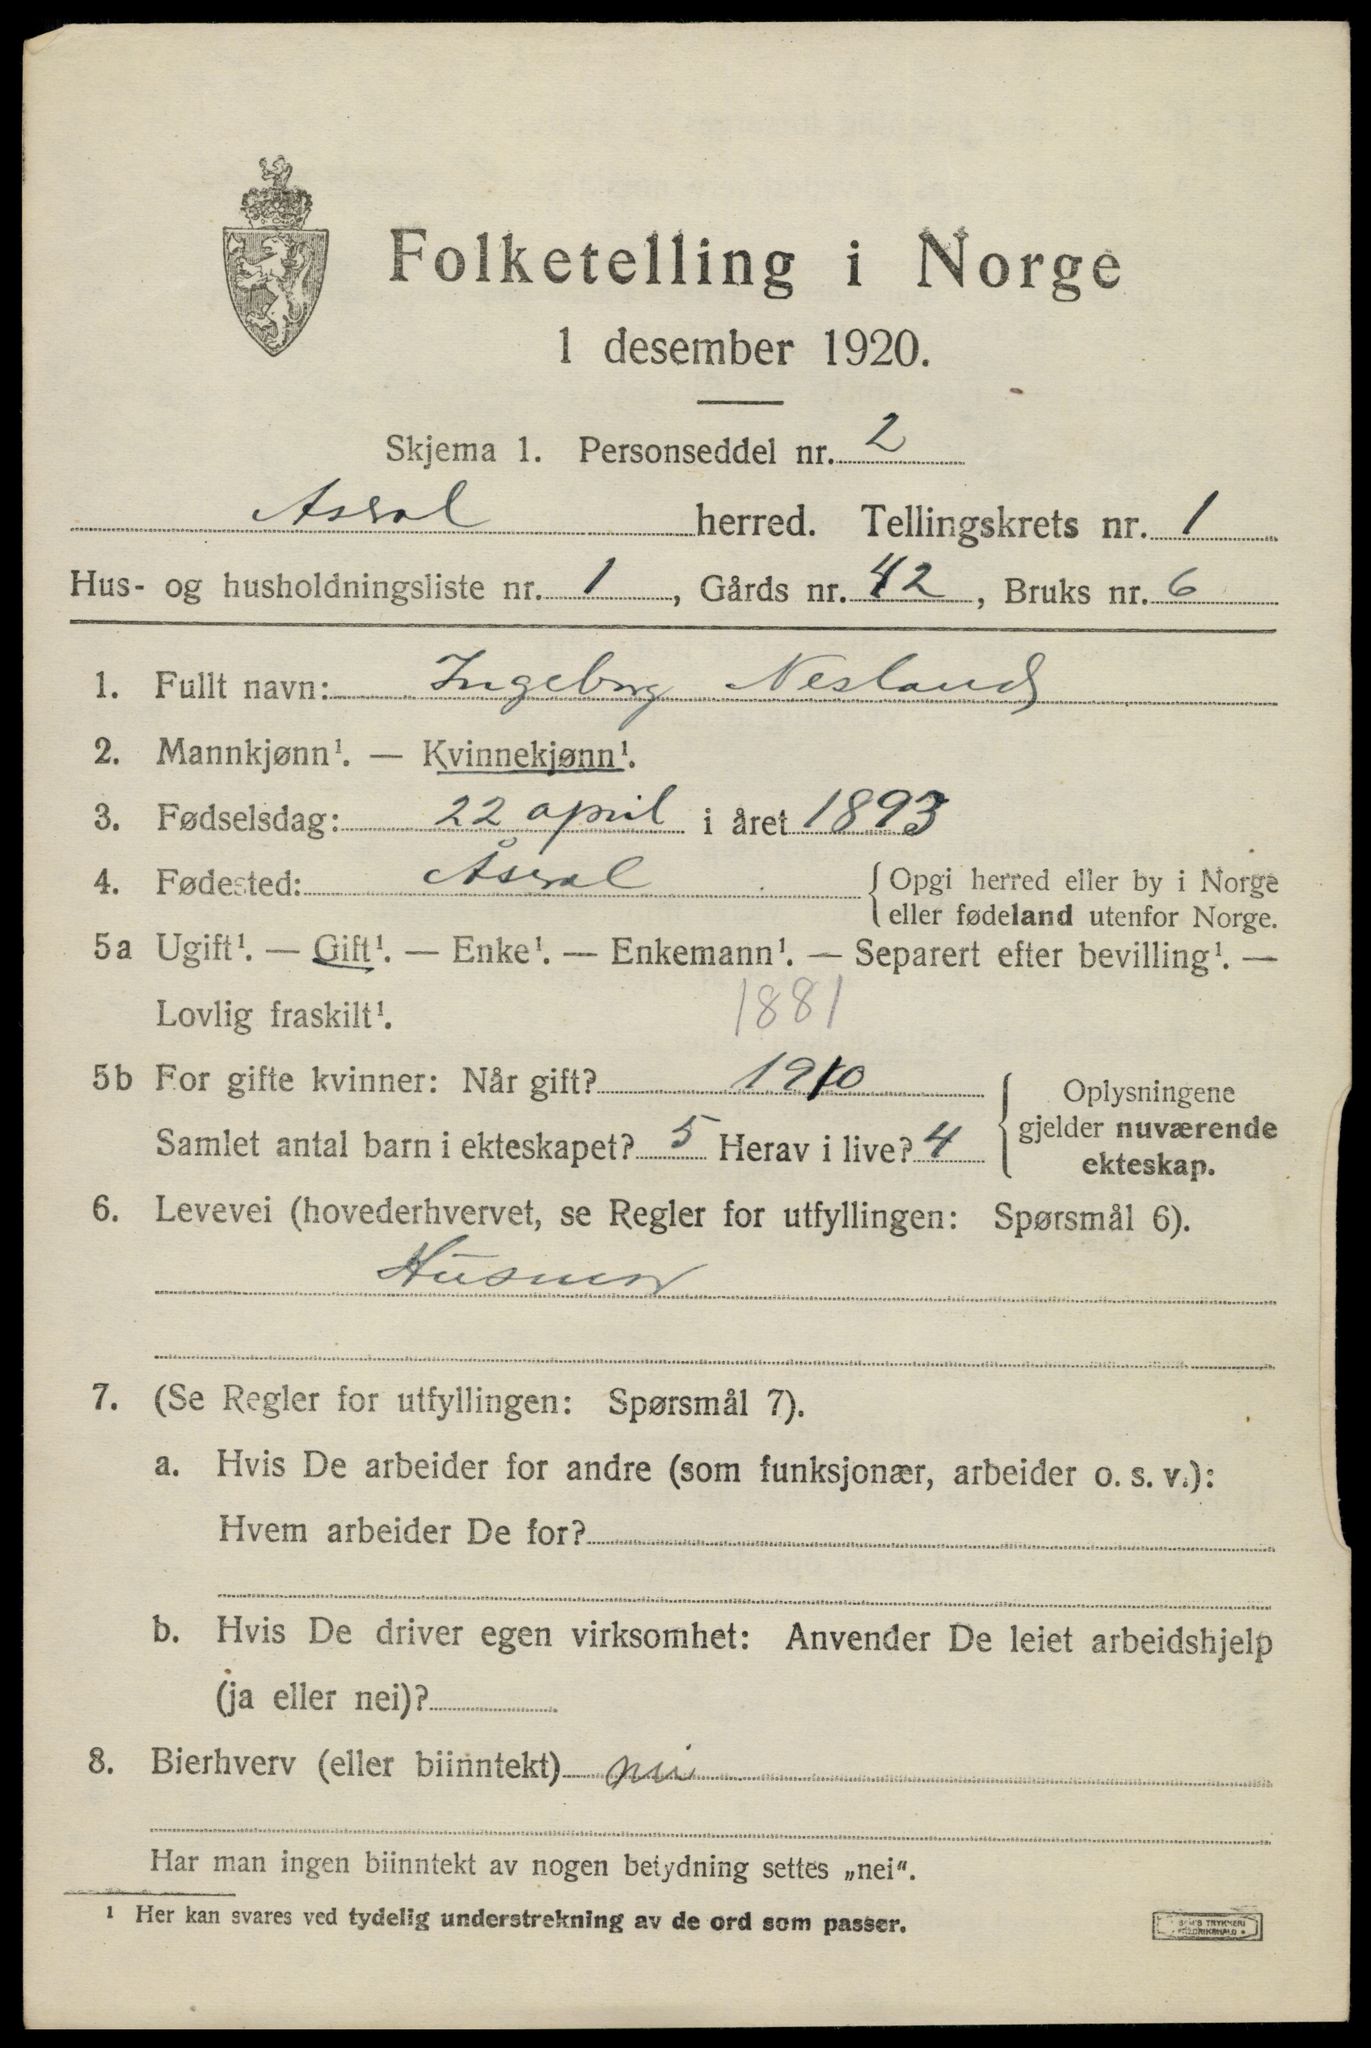 Folketelling i Norge
1 desember 1920.
Skjema 1. Personseddel nr. 2
Aseral herred. Tellingskrets nr. 1
Hus- og husholdningsliste nr. 1, Gårds nr. 42, Bruks nr. 6
1. Fullt navn: Ingeborg Nesland
2. Mannkjønn¹. — Kvinnekjønn¹.
3. Fødselsdag: 22 april i året 1893
4. Fødested: Åseral {Opgi herred eller by i Norge
eller fødeland utenfor Norge.
5a Ugift¹. — Gift¹. — Enke¹. — Enkemann¹. — Separert efter bevilling¹. —
Lovlig fraskilt¹. 1881
5b For gifte kvinner: Når gift? 1910
Samlet antal barn i ekteskapet? 5 Herav i live? 4
{Oplysningene
gjelder nuværende
ekteskap.
6. Levevei (hovederhvervet, se Regler for utfyllingen: Spørsmål 6).
Husmor
7. (Se Regler for utfyllingen: Spørsmål 7).
a. Hvis De arbeider for andre (som funksjonær, arbeider o. s. v.):
Hvem arbeider De for?
b. Hvis De driver egen virksomhet: Anvender De leiet arbeidshjelp
(ja eller nei)?
8. Bierhverv (eller biinntekt) nei
Har man ingen biinntekt av nogen betydning settes „nei“.
¹ Her kan svares ved tydelig understrekning av de ord som passer.
TRYKKERI
FREDRIKSHALD